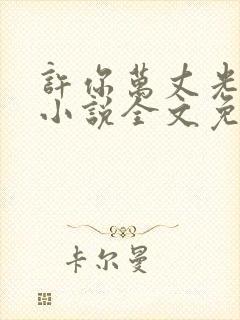 許你萬丈光
小說全文免
卡尔曼